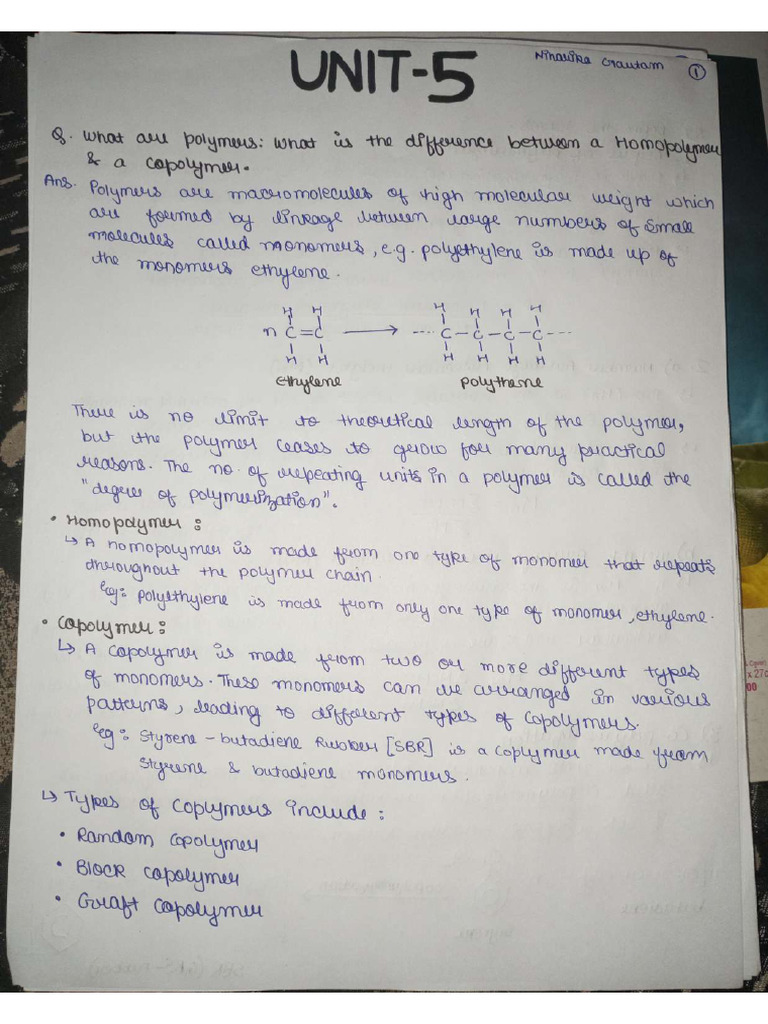 UNIT-5
Niharika Gautam 1
Q. What are polymers: What is the difference between a Homopolymer
& a copolymer.
Ans. Polymers are macromolecules of high molecular weight which
are formed by linkage between large numbers of small
molecules called monomers, e.g. polyethylene is made up of
the monomers ethylene.
H H H H H H
n C=C → ---- C-C-C-C----
H H H H H H
ethylene polythene
There is no limit to theoretical length of the polymer,
but the polymer ceases to grow for many practical
reasons. The no. of repeating units in a polymer is called the
"degree of polymerization".
• Homopolymer:
↳ A homopolymer is made from one type of monomer that repeats
throughout the polymer chain.
eg: polyethylene is made from only one type of monomer, ethylene.
• Copolymer:
↳ A copolymer is made from two or more different types
of monomers. These monomers can be arranged in various
patterns, leading to different types of copolymers.
eg: Styrene-butadiene Rubber [SBR] is a coplymer made from
styrene & butadiene monomers.
↳ Types of coplymers include:
• Random copolymer
• Block copolymer
• Graft copolymer